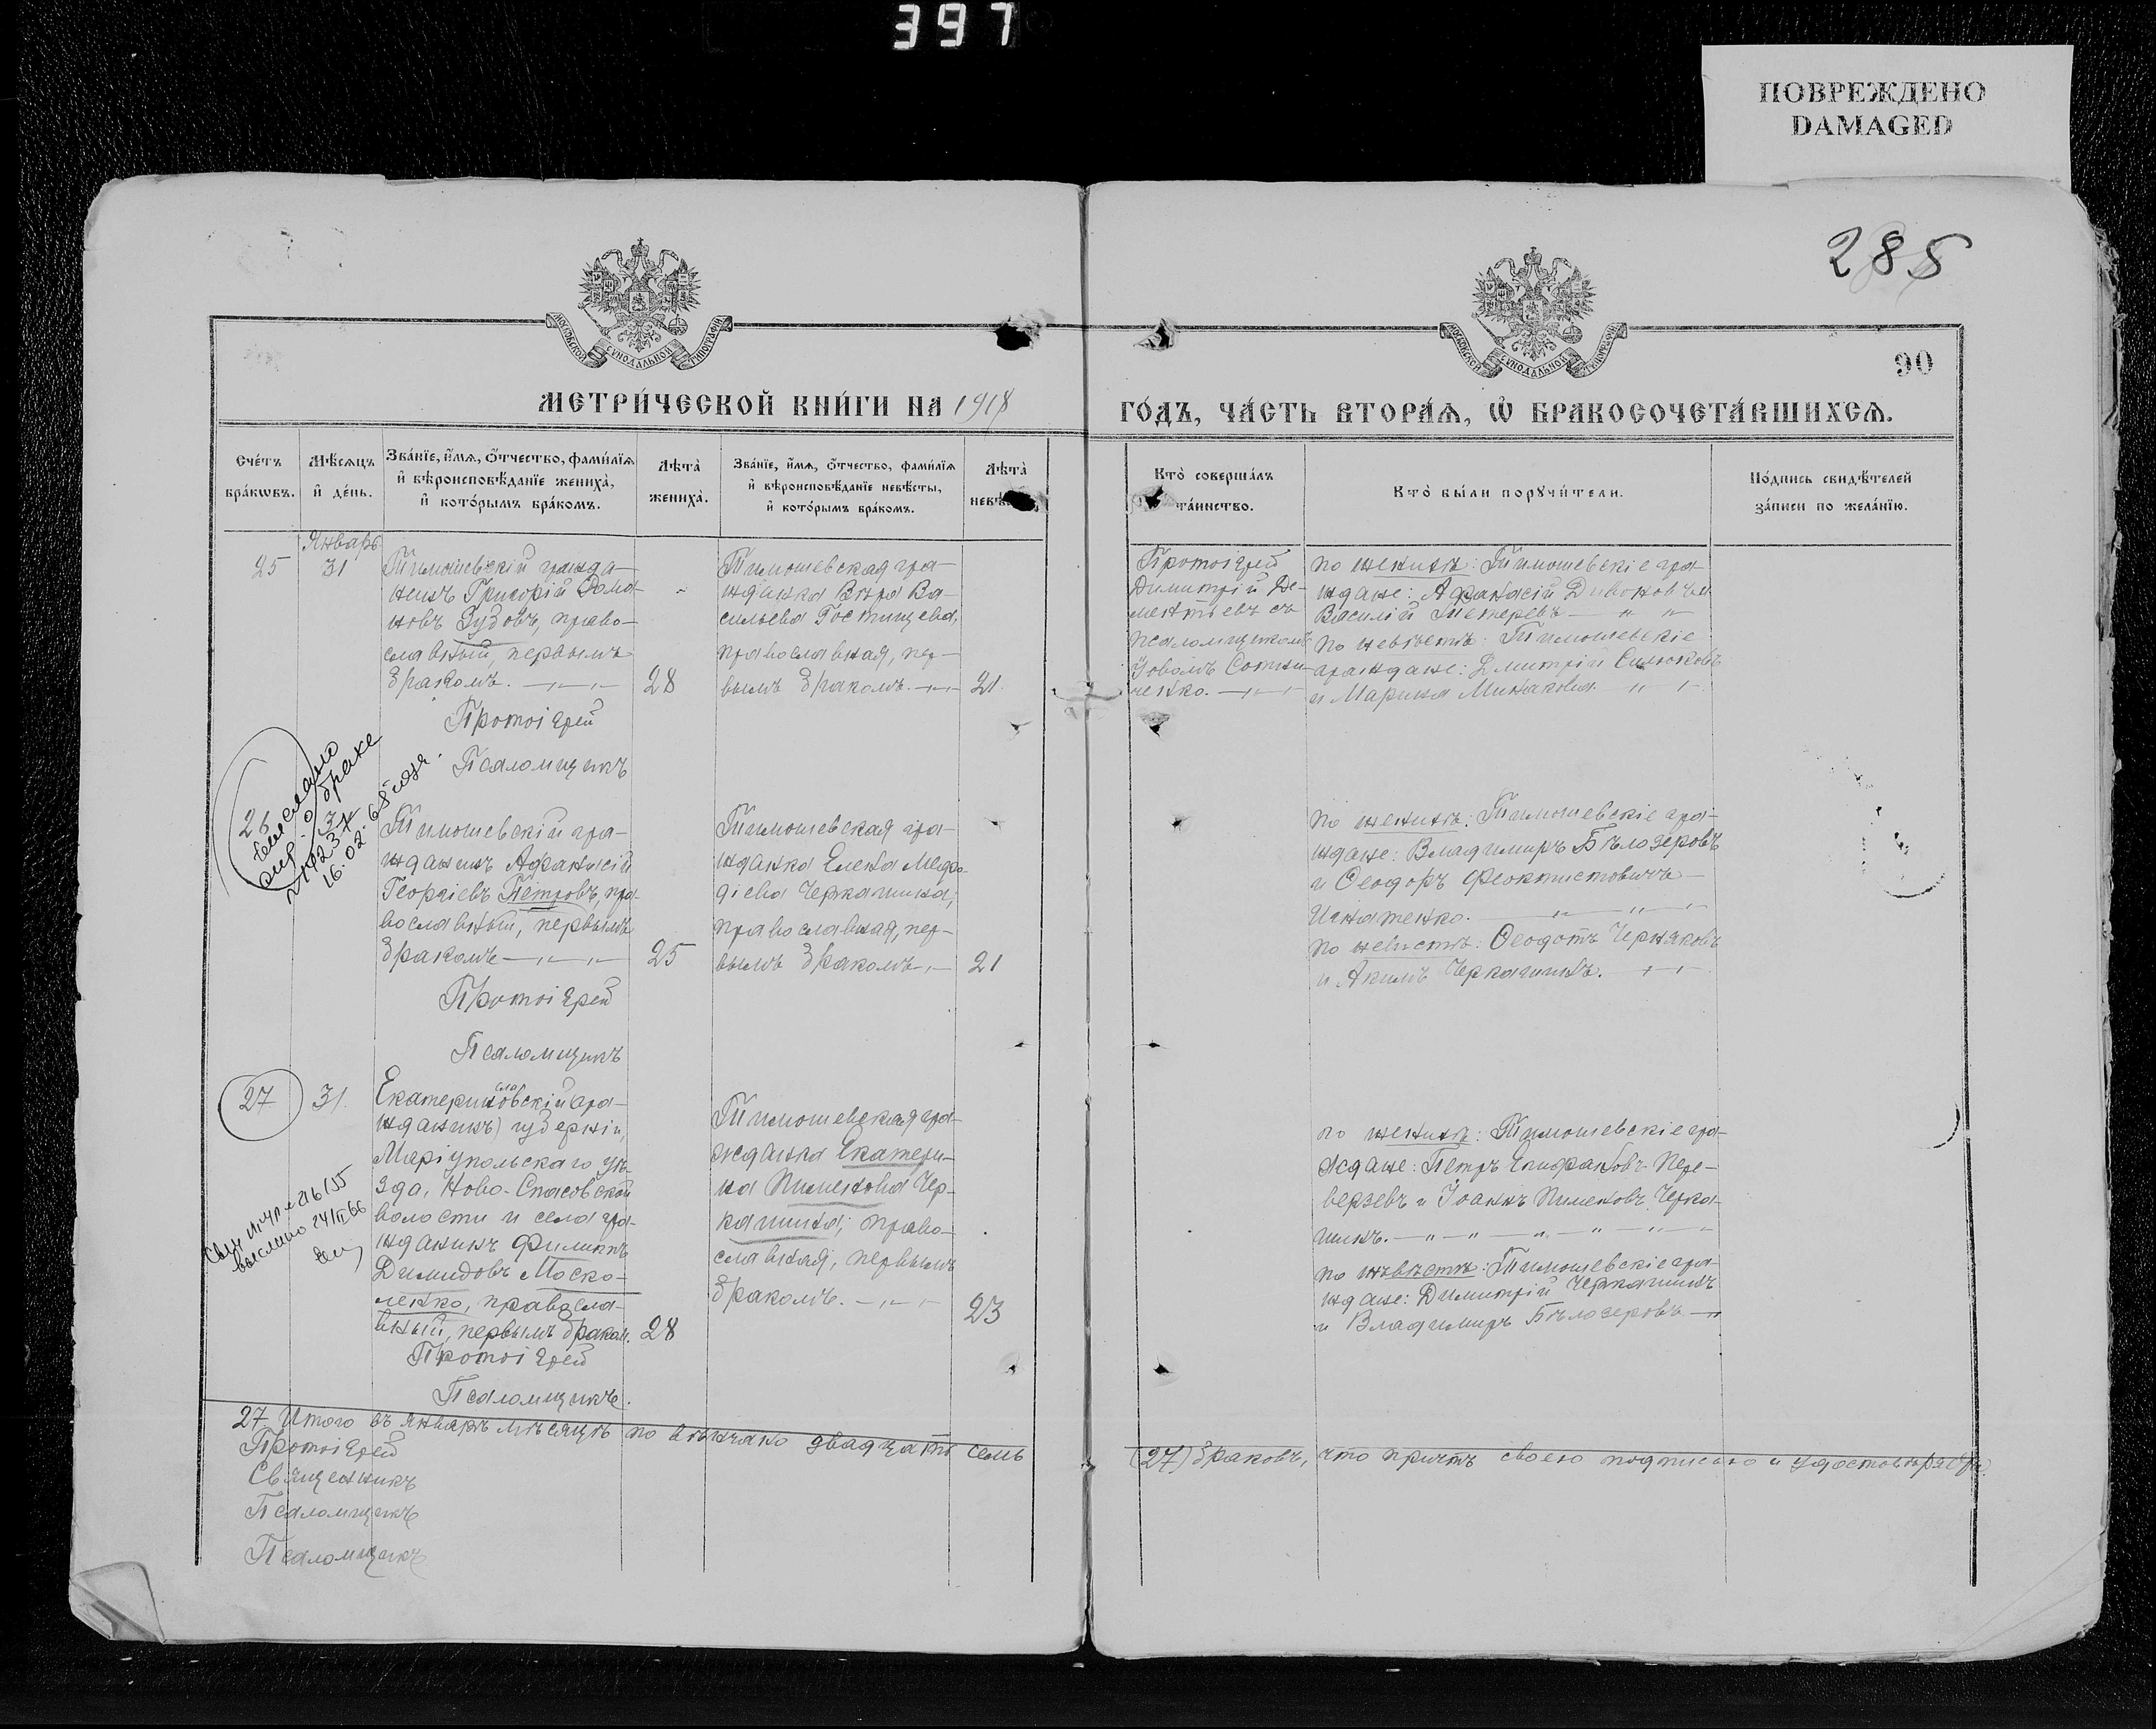 397
ПОВРЕЖДЕНО
DAMAGED
285
90
МОСКОВСКОЙ СѴНОДАЛЬНОЙ ТИПОГРАФІИ
МОСКОВСКОЙ СѴНОДАЛЬНОЙ ТИПОГРАФІИ
МЕТРИ́ЧЕСКОЙ КНИ́ГИ НА 1918
ГО́ДЪ, ЧА́СТЬ ВТОРА́Я, Ѽ БРАКОСОЧЕТА́ВШИХСЯ.
Сче́тъ
бра́кωвъ.
Мѣсяцъ
и҆ де́нь.
Зва́нїе, и҆́мя, ѻ҆́тчество, фами́лїя
и҆ вѣроисповѣ́данїе жениха̀,
и҆ кото́рымъ бра́комъ.
Лѣта̀
жениха̀.
Зва́нїе, и҆́мя, ѻ҆́тчество, фами́лїя
и҆ вѣроисповѣ́данїе невѣ́сты,
и҆ кото́рымъ бра́комъ.
Лѣта̀
невѣ
Кто̀ соверша́лъ
та́инство.
Кто̀ бы́ли порꙋчи́тели.
По́дпись свидѣ́телей
за́писи по жела́нїю.
Январь
25
31
Тимошевскій гражда-
нинъ Григорій Рома-
новъ Зубовъ, право-
славный, первымъ
бракомъ. —„—
28
Тимошевская гра-
жданка Вѣра Ва-
сильева Гостищева,
православная, пер-
вымъ бракомъ. —„—
21.
Протоіерей
Димитрій Де-
ментьевъ съ
псаломщикомъ
Іовомъ Сотни-
ченко. —„—
по женихѣ: Тимошевскіе гра-
ждане: Афанасій
Василій Тетеревъ — „ — „
по невѣстѣ: Тимошевскіе
граждане: Дмитрій Синюковъ
и Марина Минакова. — „ —
Протоіерей
Псаломщикъ
26
31
выслано
о браке
16.02.68
Тимошевскій гра-
жданинъ Афанасій
Георгіевъ Петровъ, пра-
вославный, первымъ
бракомъ —„—„—
25
Тимошевская гра-
жданка Елена Мефо-
діева Черкашина,
православная, пер-
вымъ бракомъ —„—
21
по женихѣ: Тимошевскіе гра-
ждане: Владимиръ Бѣлозеровъ
и Ѳеодоръ Феоктистовичъ
Игнатенко. — „ — „ —
по невѣстѣ: Ѳеодотъ Черняковъ
и Акимъ Черкашинъ. — „ —
Протоіерей
Псаломщикъ
27
31.
Екатеринославскій гра-
жданинъ) губерніи,
Маріупольскаго уѣ-
зда, Ново-Спасовской
волости и села гра-
жданинъ Филиппъ
Димидовъ Моско-
ленко, правосла-
вный, первымъ браком.
28
выслано 24/II 66
Тимошевская гра-
жданка Екатери-
на Пименова Чер-
кашина, право-
славная, первымъ
бракомъ. —„—
23
по женихѣ: Тимошевскіе гра-
ждане: Петръ Епифановъ Пере-
верзевъ и Іоаннъ Пименовъ Черка-
шинъ. — „ — „ — „ — „ — „ —
по невѣстѣ: Тимошевскіе гра-
ждане: Димитрій Черкашинъ
и Владимиръ Бѣлозеровъ — „
Протоіерей
Псаломщикъ.
27. Итого въ январѣ мѣсяцѣ повѣнчано двадцать семь
(27) браковъ, что причтъ своею подписью и удостовѣряетъ.
Протоіерей
Священникъ
Псаломщикъ
Псаломщикъ